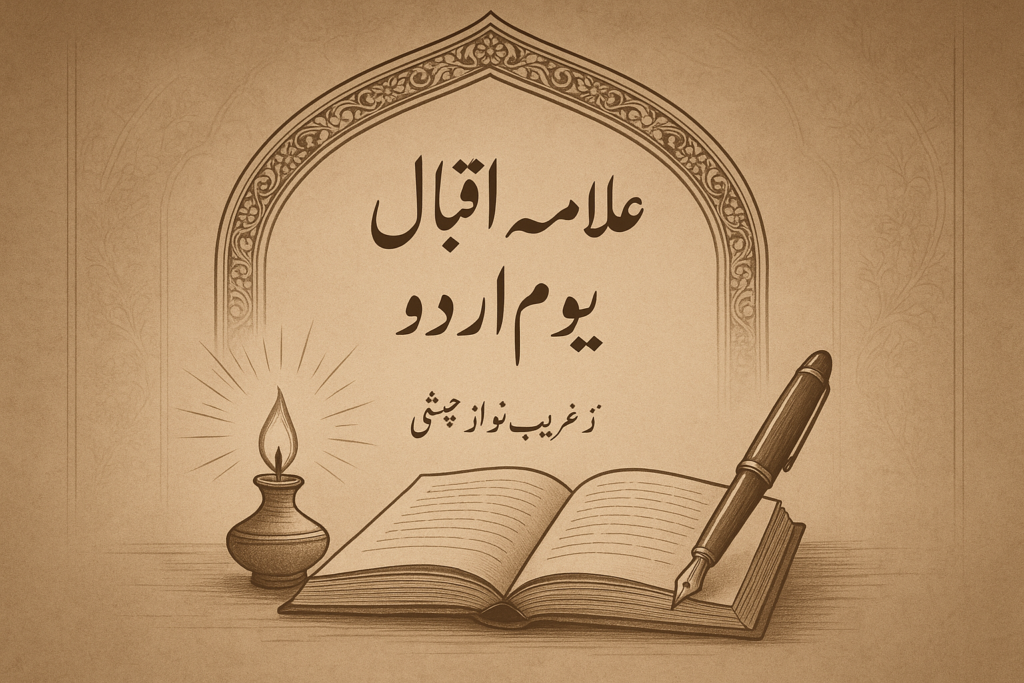 علامہ اقبال
یوم اردو
ز غریب نواز چشتی